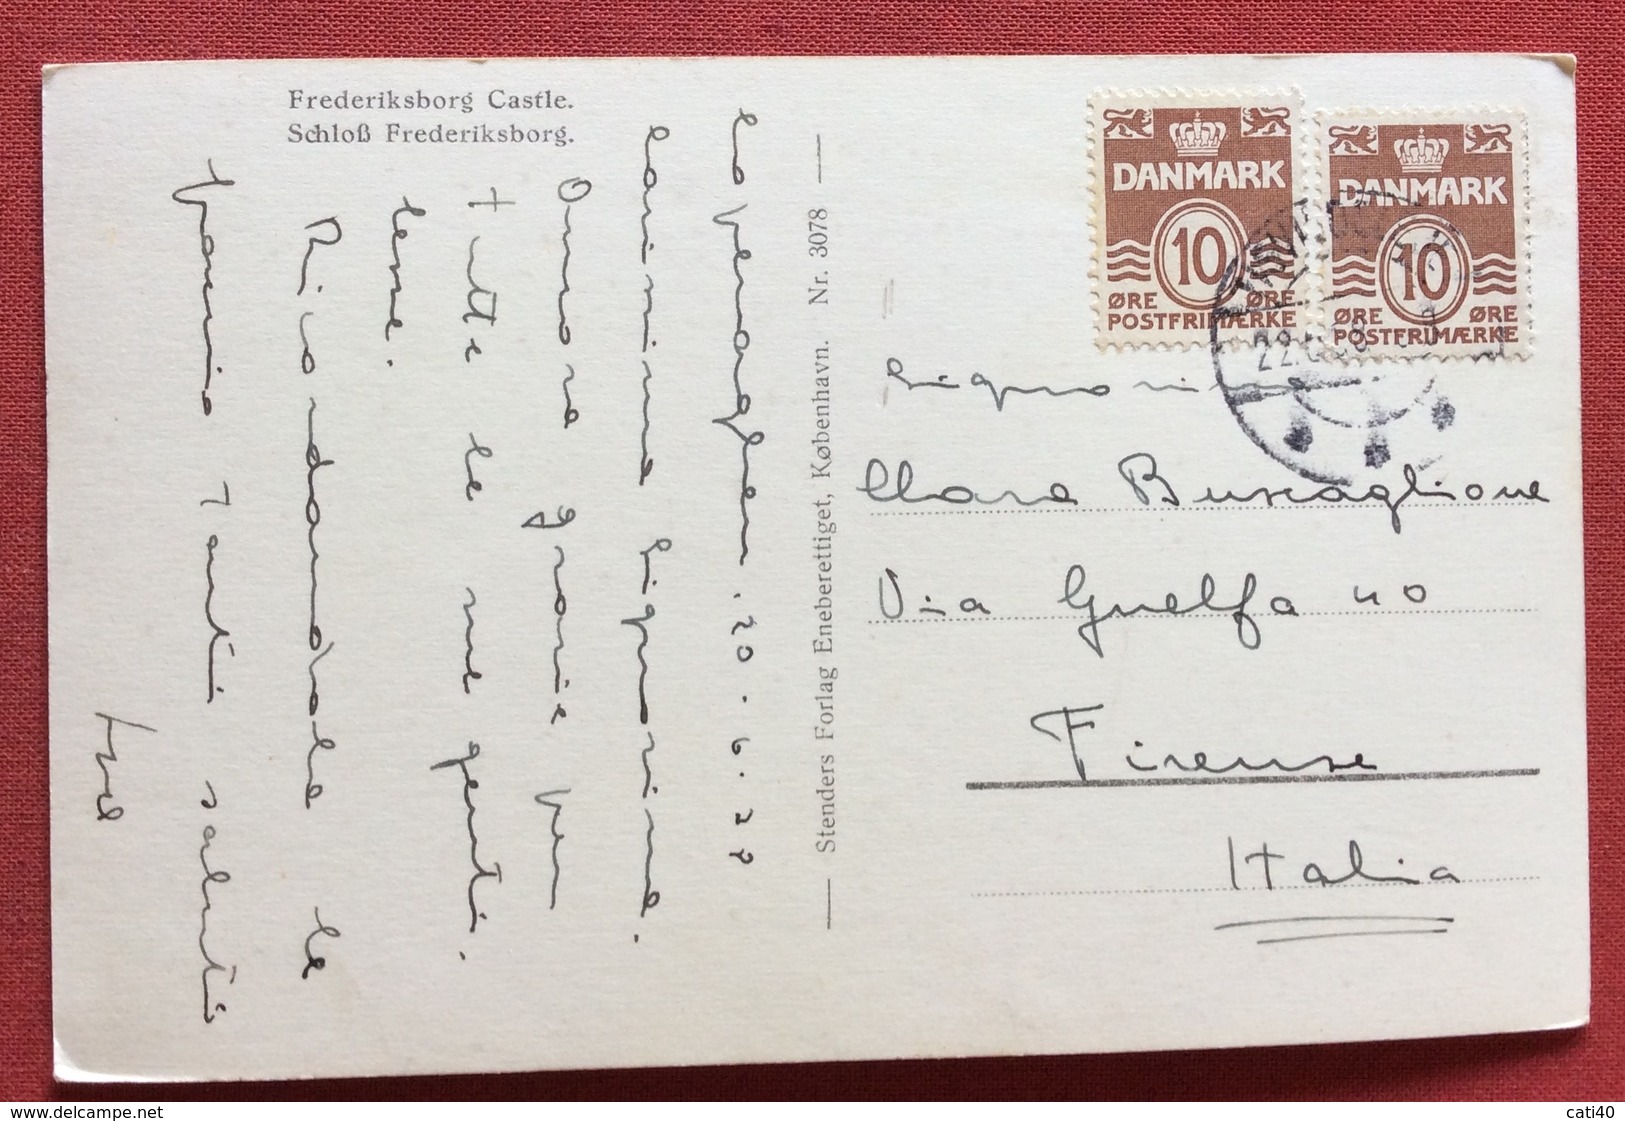 Frederiksborg Castle.
Schloß Frederiksborg.
Copenaghen. 20.6.
carissima Signorina.
Ancora grazie per
tutte le sue genti
lezze.
Ricordandola la
saluti
Stenders Forlag Eneberettiget, København. Nr. 3078
DANMARK
10
ØRE ØRE
POSTFRIMÆRKE
DANMARK
10
ØRE ØRE
POSTFRIMÆRKE
Signorina
Clara Buscaglione
Via Guelfa 40
Firenze
Italia
cati40